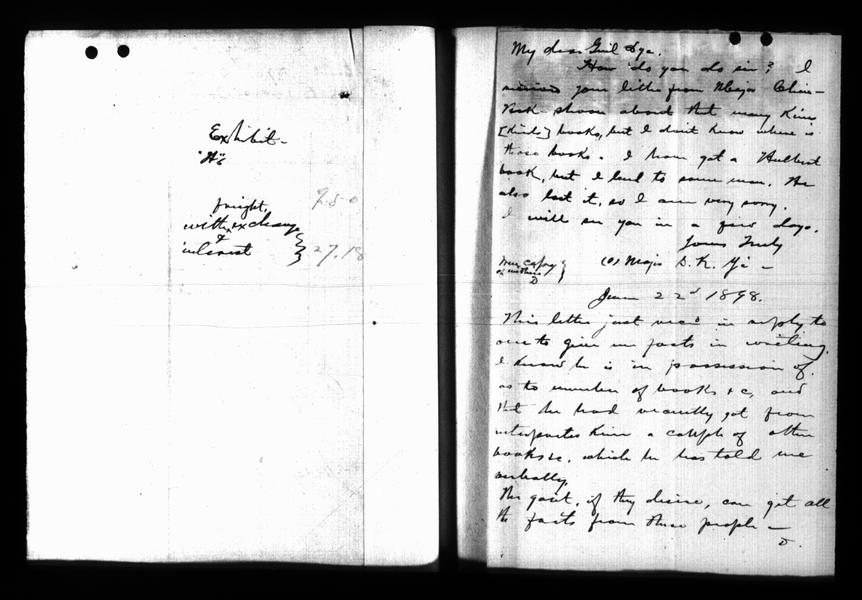 Exhibit -
"A"
freight, 9.50
with exchange
&
interest } 27.18
My dear Genl Dye.
How do you do sir? I
received your letter from Major Chin-
about that many Kim
[Kim's] books, but I don't know where is
those books. I have got a Hulbert
book, but I lend to some man. He
also lost it, so I am very sorry.
I will see you in a few days.
Yours Truly
True copy }
of within
D
(O) Major D. K. Yi -
June 22d 1898.
This letter just rec'd in reply to
one to give me facts in writing,
I know he is in possession of.
as to number of books &c, and
that he had recently got from
interpreter Kim a couple of other
books &c. which he has told me
verbally.
The govt, if they desire, can get all
the facts from these people -
D.